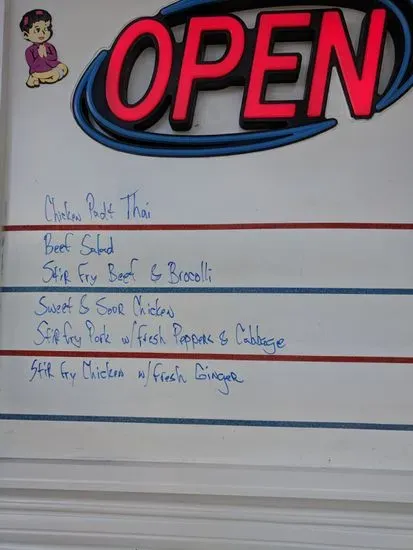 OPEN
Chicken Padt Thai
Beef Salad
Stir Fry Beef & Brocolli
Sweet & Sour Chicken
Stir fry Pork w/fresh Peppers & Cabbage
Stir Fry Chicken w/Fresh Ginger